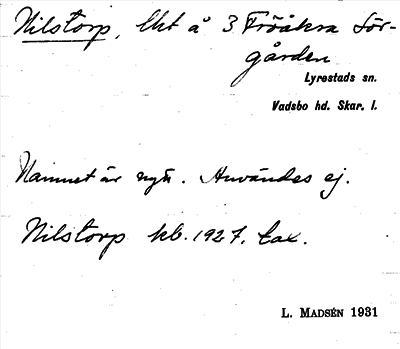 Nilstorp, lht å 3 Fröåkra Sör-
gården
Lyrestads sn.
Vadsbo hd. Skar. l.
Namnet är nytt. Användes ej.
Nilstorp kb. 1927. tax.
L. MADSÉN 1931